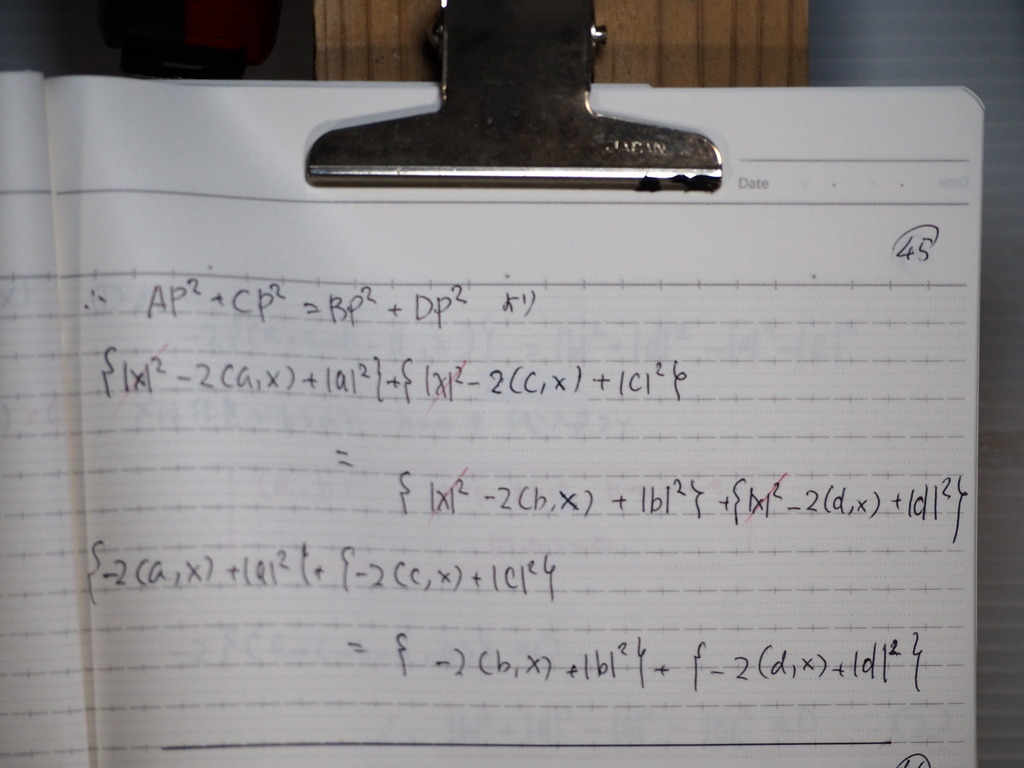 JAPAN
Date
45
∴ AP² + CP² = BP² + DP² より
{|x|² - 2(a,x) + |a|²} + {|x|² - 2(c,x) + |c|²}
=
{|x|² - 2(b,x) + |b|²} + {|x|² - 2(d,x) + |d|²}
{-2(a,x) + |a|²} + {-2(c,x) + |c|²}
= {-2(b,x) + |b|²} + {-2(d,x) + |d|²}